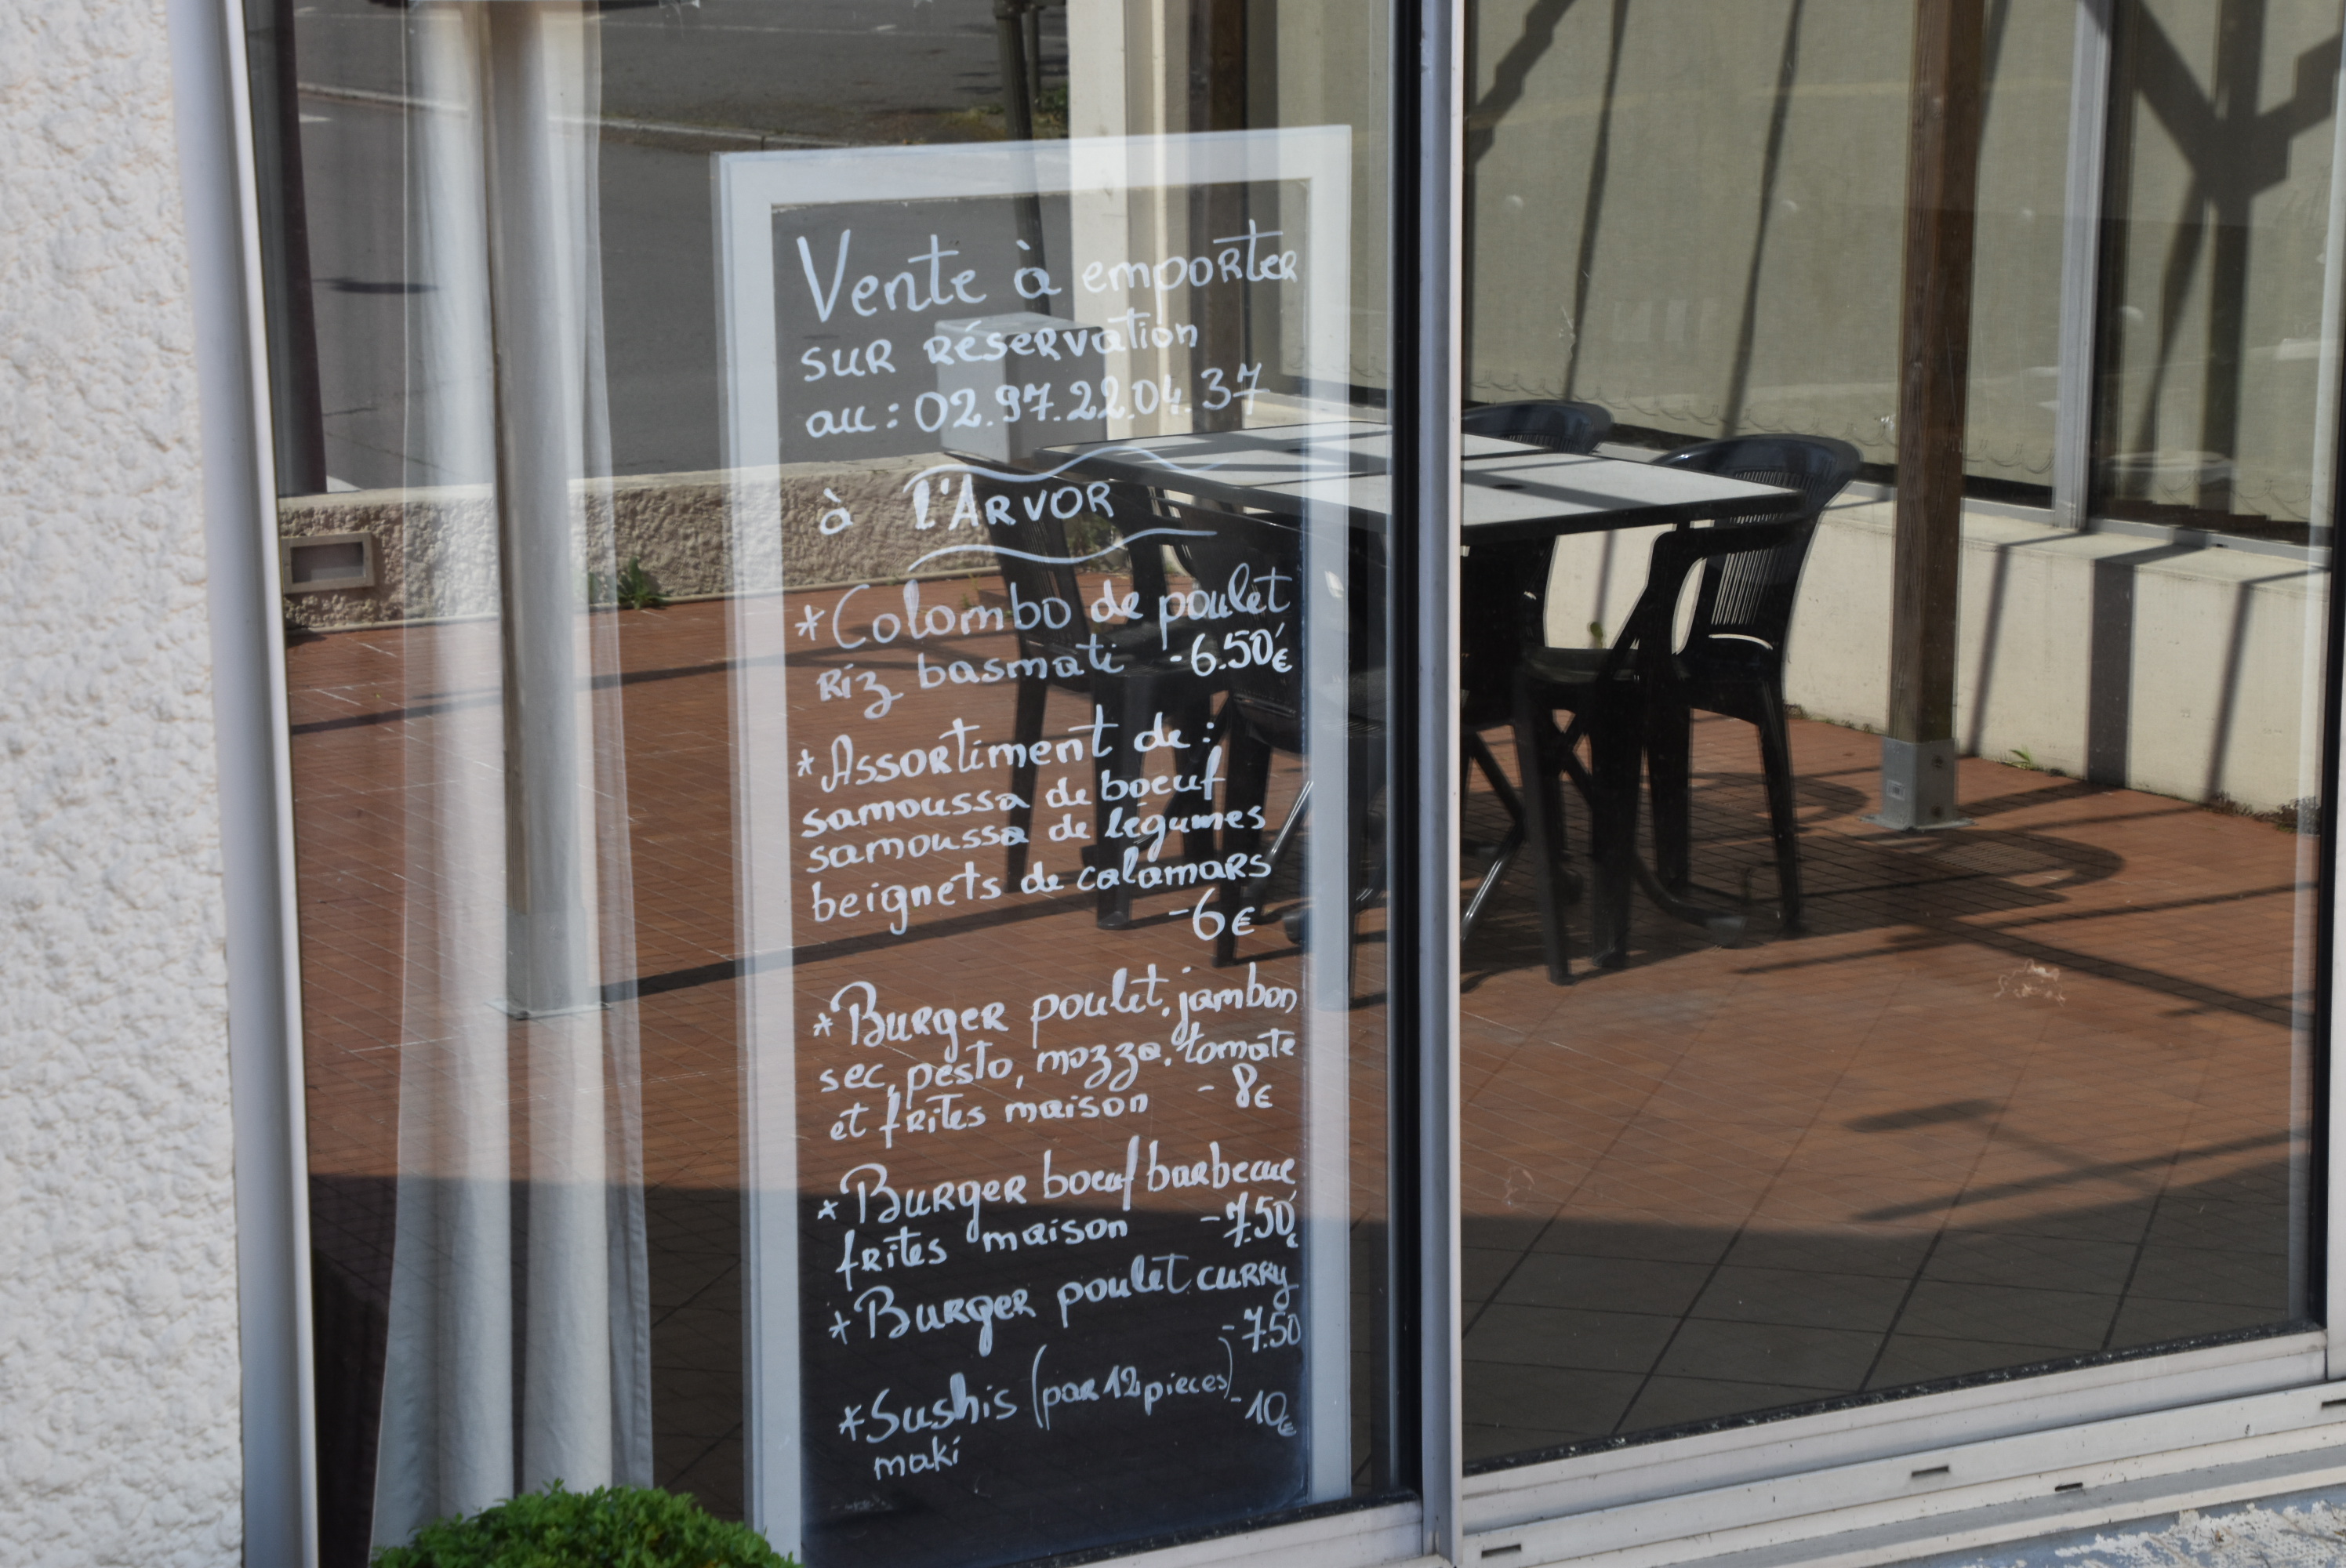 Vente à emporter
sur réservation
au : 02.97.22.04.37
à l'Arvor
*Colombo de poulet
Riz basmati -6.50€
*Assortiment de :
samoussa de boeuf
samoussa de légumes
beignets de calamars
-6€
*Burger poulet, jambon
sec, pesto, mozza, tomate
et frites maison - 8€
*Burger boeuf barbecue
frites maison -7.50€
*Burger poulet curry
-7.50
*Sushis (par 12 pieces) -10€
maki